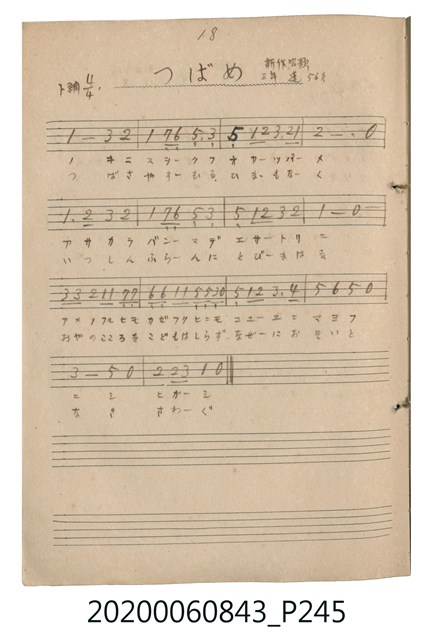 18
ト調 4/4. つばめ 新作唱歌
三年
1 — 3 2 | 1 76 5. 3 | 5 12 3. 21 | 2 — . 0
ノ キ ニ ス ヲ ー ク フ オ ヤ ー ツ バ ー メ
つ ば さ や す ー む る ひ ま も な ー く
1. 2 3 2 | 1 76 5 3 | 5 12 3 2 | 1 — 0
ア サ カ ラ バ ン ー マ デ エ サ ー ト リ ニ
い つ し ん ふ ら ー ん に と び ー ま は る
33 2 11 77 | 66 11 55 30 | 5 12 3. 4 | 5 6 5 0
アメノフルヒモ カゼフクヒニモ コニーエニ マヨフ
おやのこころをこどもはしらず なぜーにおそいと
3 — 5 0 | 2 23 1 0
ニ シ ヒ ガー シ
な き さ わー ぐ
20200060843_P245